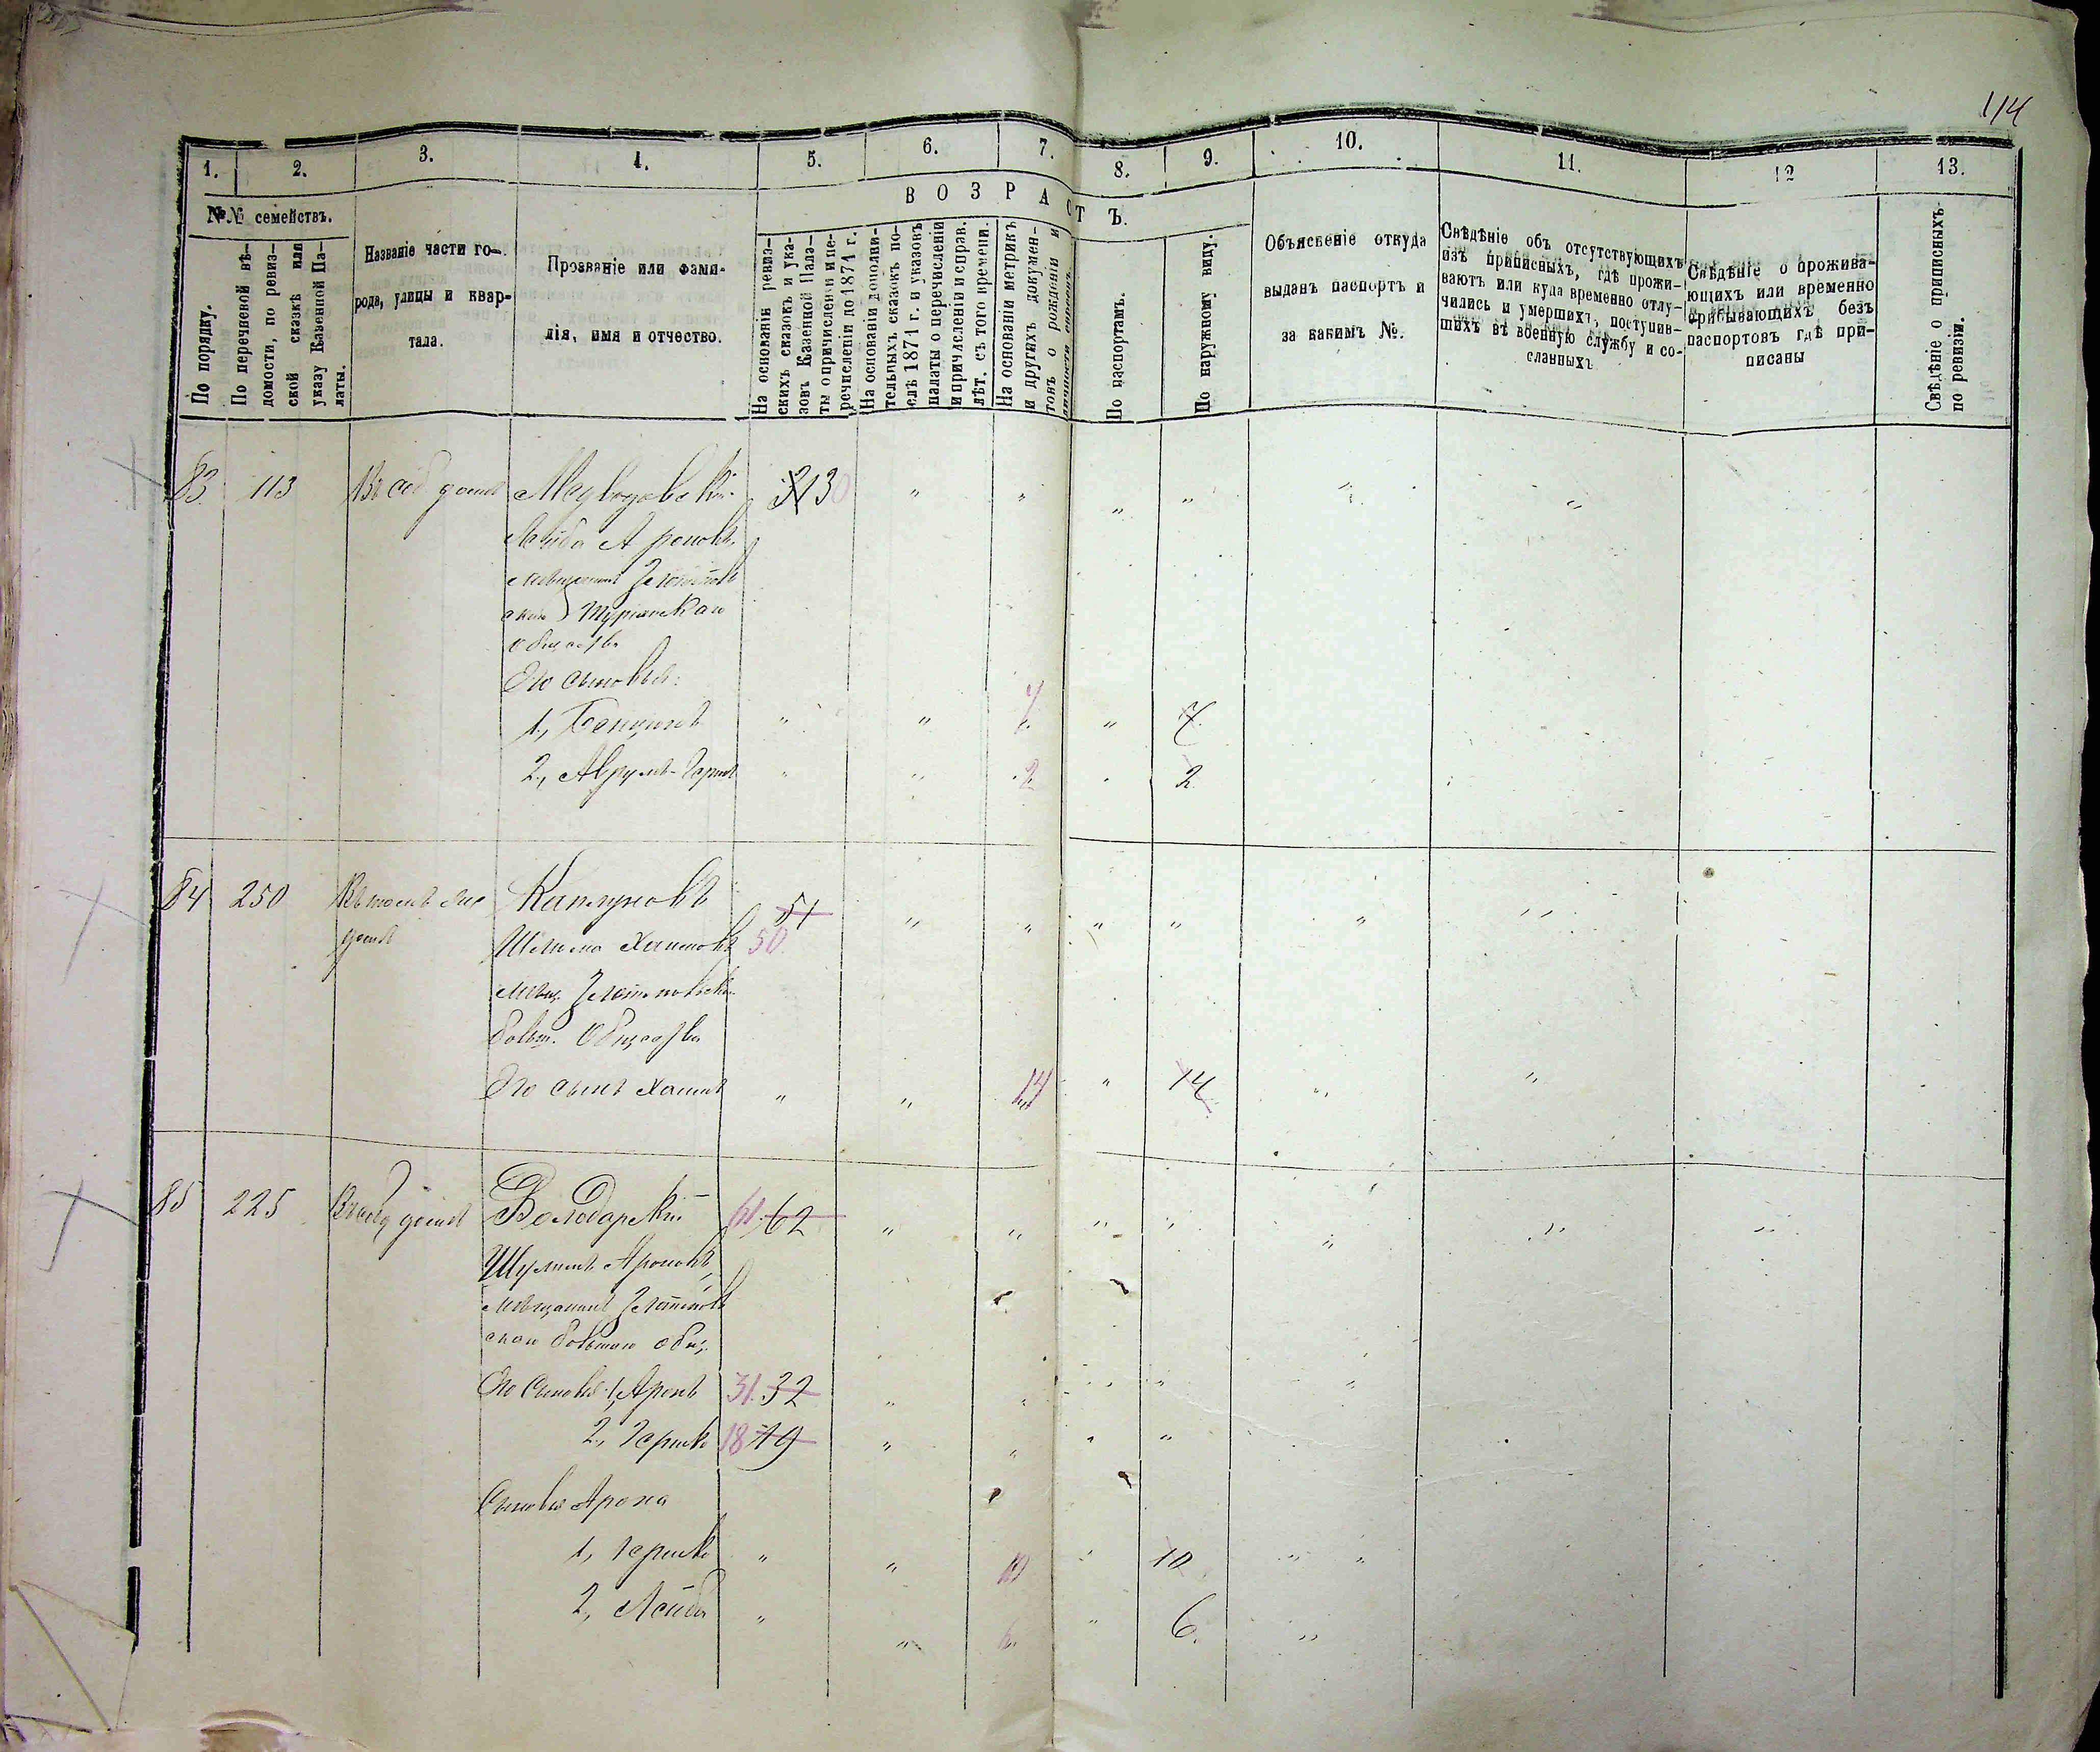 114
1. 2. 3. 4. 5. 6. 7. 8. 9. 10. 11. 12 13.
№№ семействъ.
По порядку.
По перечневой вѣ-
домости, по ревиз-
ской сказкѣ или
указу Казенной Па-
латы.
Названіе части го-
рода, улицы и квар-
тала.
Прозваніе или фами-
лія, имя и отчество.
ВОЗРАСТЪ.
На основаніи ревиз-
скихъ сказокъ и ука-
зовъ Казенной Пала-
ты о причисленіи и пе-
речисленіи до 1874 г.
На основаніи дополни-
тельныхъ сказокъ по-
слѣ 1874 г. и указовъ
палаты о перечисленіи
и причисленіи и справ.
лѣт. съ того времени.
На основаніи метрикъ
и другихъ докумен-
товъ о рожденіи и
По паспортамъ.
По наружному виду.
Объясненіе откуда
выданъ паспортъ и
за какимъ №.
Свѣдѣніе объ отсутствующихъ
изъ приписныхъ, гдѣ прожи-
ваютъ или куда временно отлу-
чились и умершихъ, поступив-
шихъ въ военную службу и со-
сланныхъ
Свѣдѣніе о прожива-
ющихъ или временно
безъ
паспортовъ гдѣ при-
писаны
Свѣдѣніе о приписныхъ
по ревизіи.
83 113 Въ соб домѣ Медведовскій 31 30 " " " " " "
Лейба Ароновъ
мѣщанинъ Златопов
скаго Туріянскаго
общества
Его сыновья:
1, Бенционъ " " 7 " 7
2, Аврумъ-Герш " " 2 2
84 250 Въ томъ же Каплуновъ 51 " " " " " "
домѣ Шлиома Хаимовъ 50
мѣщ. Златопольск.
больш. Общества
Его сынъ Хаимъ " " 14 " 14 " "
85 225 Въ соб домѣ Володарскій 61 62 " " " " " " "
Шулимъ Ароновъ
мѣщанинъ Златопов
скаго большаго общ.
Его сыновья 1, Аронъ 31 32 " " " " "
2, Гершко 18 19 " " " "
Сыновья Арона
1, Гершко " " 10 " 10 " "
2, Лейба " " 6 " 6. "